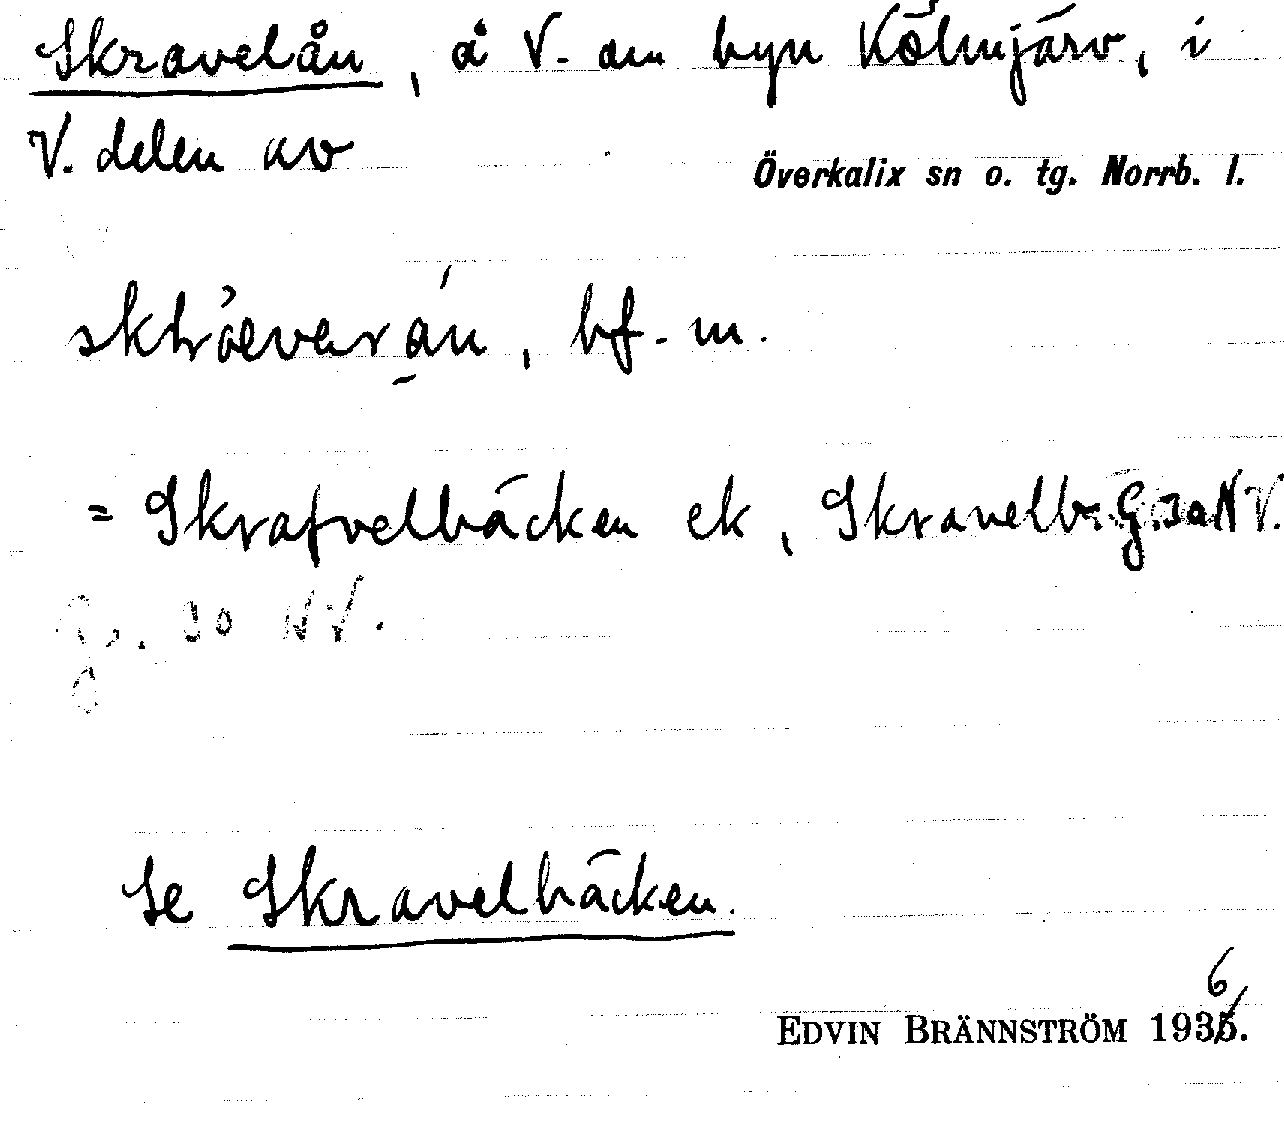 Skravelån, å V. om byn Kölmjärv, i
V. delen av
Överkalix sn o. tg. Norrb. l.
bf. m.
= Skrafvelbäcken ek, Skravelb. G. 30 NV.
G. 30 NV.
Se Skravelbäcken.
6
EDVIN BRÄNNSTRÖM 1935.